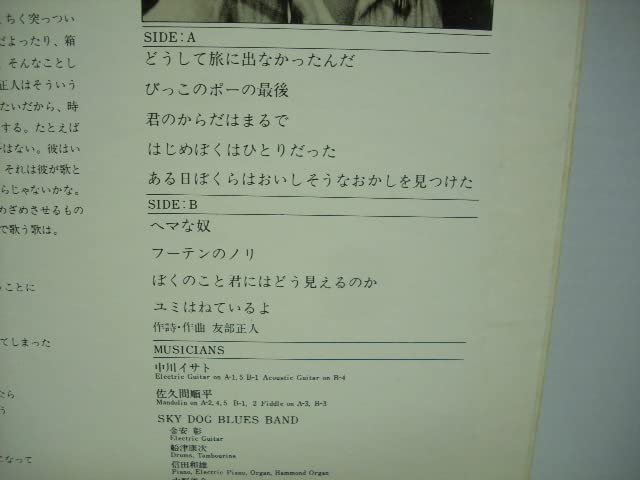 ちく突っつい
だよったり、箱
、そんなことし
正人はそういう
たいだから、時
する。たとえば
はない。彼はい
それは彼が歌と
らじゃないかな。
めざめさせるもの
で歌う歌は。
ことに
てしまった
たら
う
になって
SIDE:A
どうして旅に出なかったんだ
びっこのポーの最後
君のからだはまるで
はじめぼくはひとりだった
ある日ぼくらはおいしそうなおかしを見つけた
SIDE:B
ヘマな奴
フーテンのノリ
ぼくのこと君にはどう見えるのか
ユミはねているよ
作詩・作曲 友部正人
MUSICIANS
中川イサト
Electric Guitar on A-1, 5 B-1 Acoustic Guitar on B-4
佐久間順平
Mandolin on A-2, 4, 5 B-1, 2 Fiddle on A-3, B-3
SKY DOG BLUES BAND
金安 彰
Electric Guitar
船津康次
Drums, Tambourine
信田和雄
Piano, Electric Piano, Organ, Hammond Organ